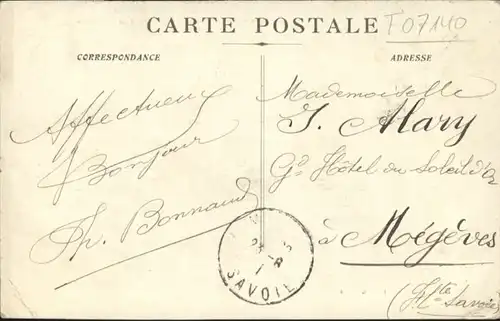 CARTE POSTALE
T07140
CORRESPONDANCE
ADRESSE
Affectueux
Bonjour
Th. Bonnaud
Mademoiselle
J. Alary
Gd Hôtel du Soleil d'Or
à Mégèves
(Hte Savoie)
SAVOIE